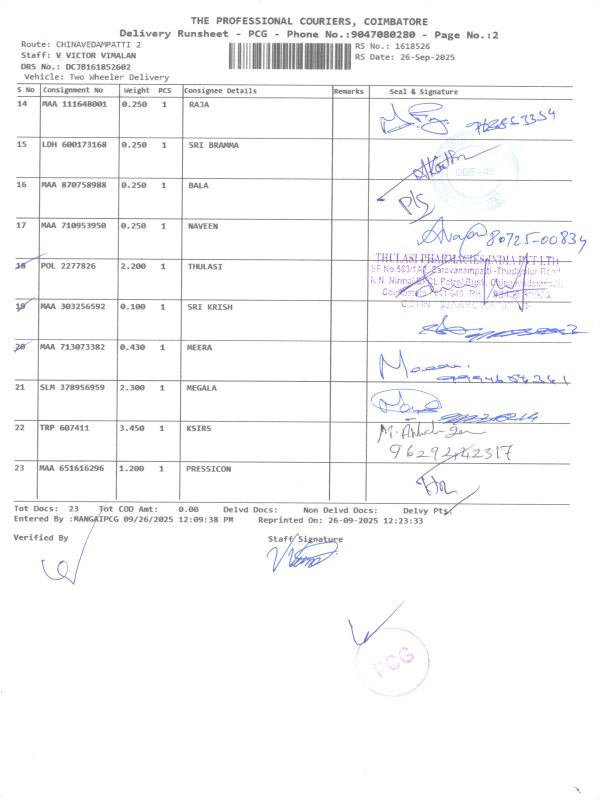 THE PROFESSIONAL COURIERS, COIMBATORE
Delivery Runsheet - PCG - Phone No.:9047080280 - Page No.:2
Route: CHINAVEDAMPATTI 2
RS No.: 1618526
Staff: V VICTOR VIMALAN
RS Date: 26-Sep-2025
DRS No.: DCJB161852602
Vehicle: Two Wheeler Delivery
S No Consignment No Weight PCS Consignee Details Remarks Seal & Signature
14 MAA 111648001 0.250 1 RAJA
15 LDH 600173168 0.250 1 SRI BRAMMA
CBE - 49
16 MAA 870758988 0.250 1 BALA
17 MAA 710953950 0.250 1 NAVEEN 80725-00834
18 POL 2277826 2.200 1 THULASI
THULASI PHARMACIES INDIA PVT LTD
19 MAA 303256592 0.100 1 SRI KRISH
20 MAA 713073382 0.430 1 MEERA
21 SLM 378956959 2.300 1 MEGALA
22 TRP 607411 3.450 1 KSIRS
23 MAA 651616296 1.200 1 PRESSICON
Tot Docs: 23 Tot COD Amt: 0.00 Delvd Docs: Non Delvd Docs: Delvy Pts:
Entered By :MANGAIPCG 09/26/2025 12:09:38 PM Reprinted On: 26-09-2025 12:23:33
Verified By Staff Signature
PCG